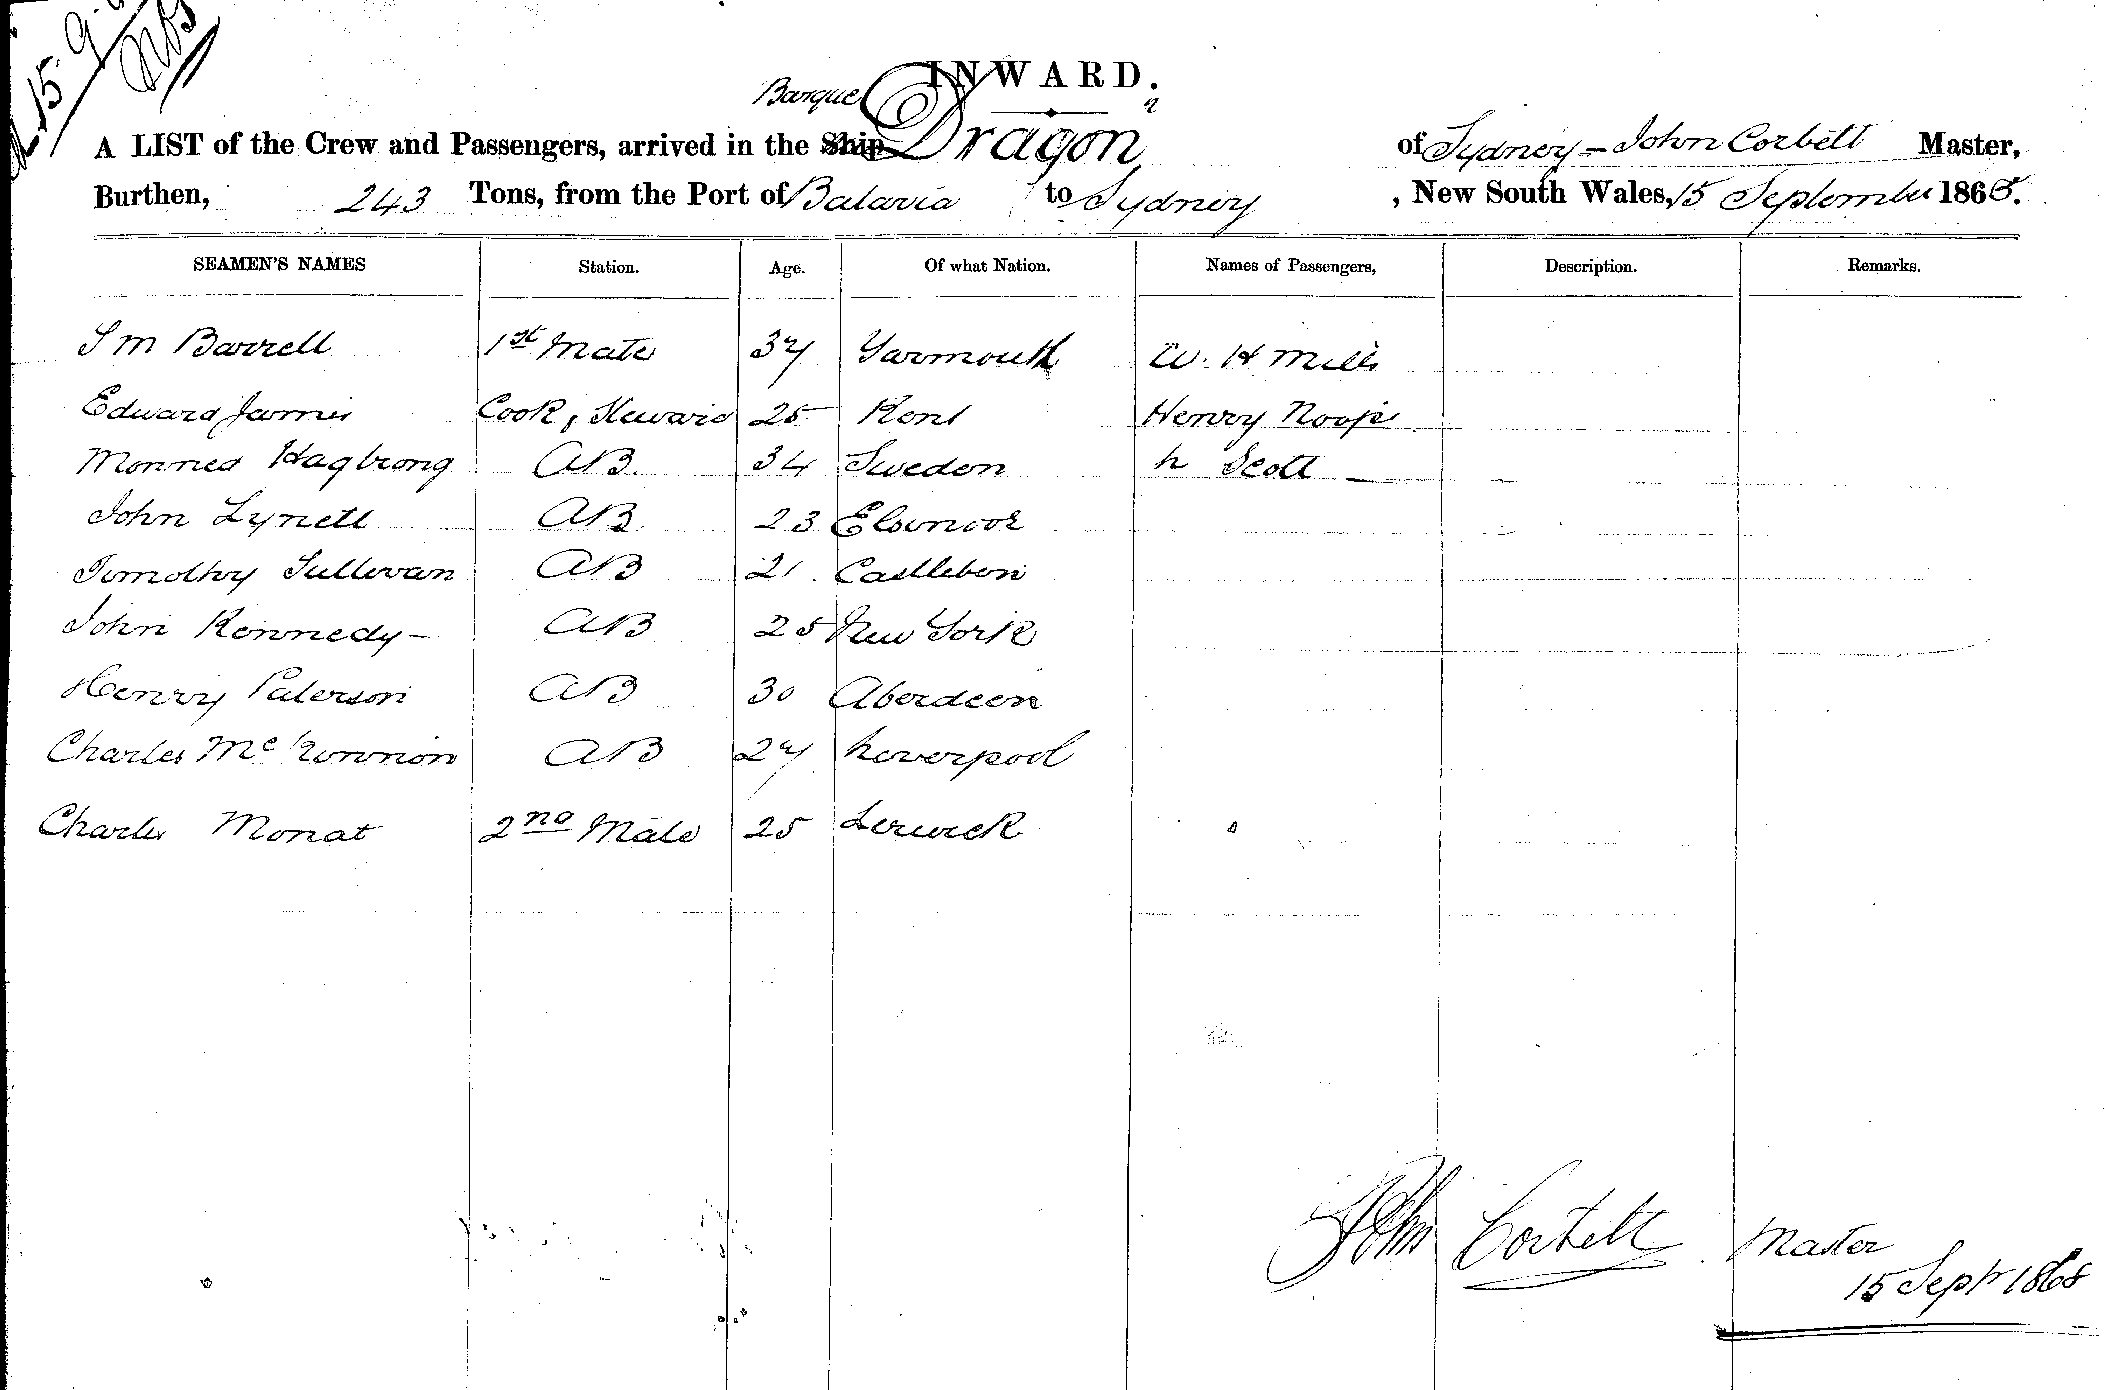 15
INWARD.
Barque
A LIST of the Crew and Passengers, arrived in the Ship Dragon of Sydney - John Corbett Master,
Burthen, 243 Tons, from the Port of Batavia to Sydney, New South Wales, 15 September 1868.
SEAMEN'S NAMES Station. Age. Of what Nation. Names of Passengers, Description. Remarks.
S M Barrell 1st Mate 37 Yarmouth W. H Mills
Edward James Cook, Steward 25 Kent Henry
AB 34 Sweden Scott
John Lynett AB 23 Elsinoor
Timothy Sullivan AB 21
John Kennedy - AB 25 New York
Henry Paterson AB 30 Aberdeen
Charles McKinnion AB 27 Liverpool
Charles Monat 2nd Mate 25 Lerwick
John Corbett Master
15 Sept 1868